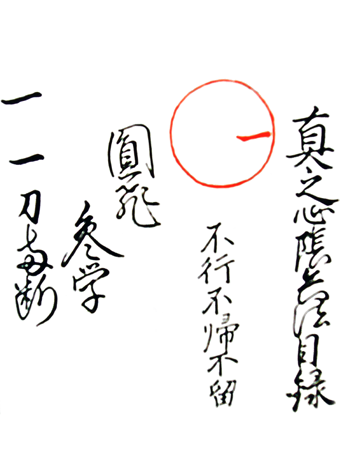 真之心陰兵法目録
不行不帰不留
圓飛
参学
一
一刀両断